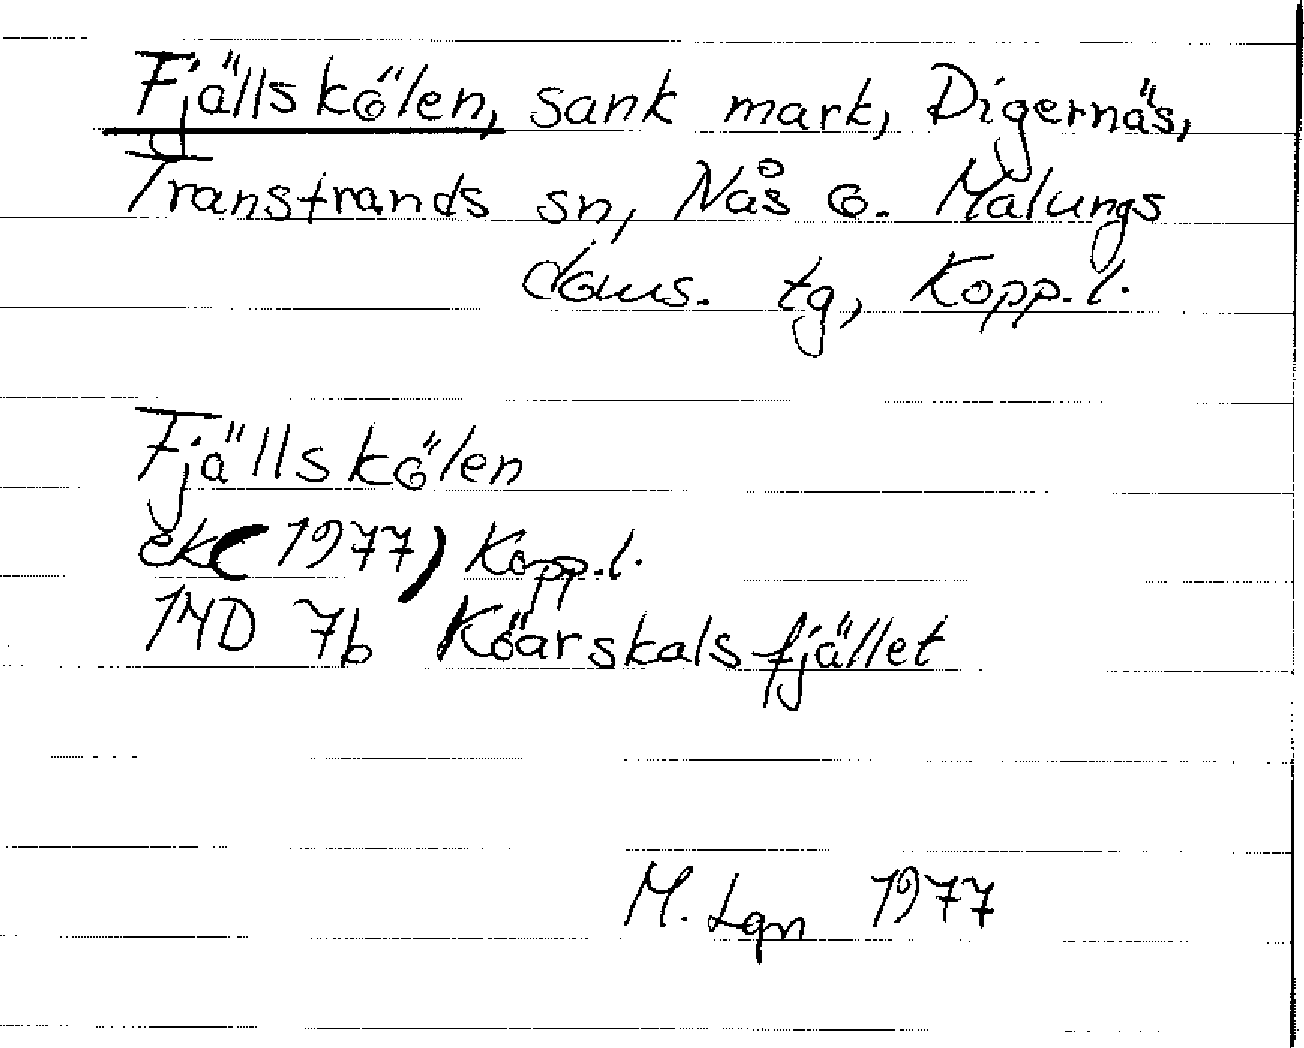 Fjällskölen, sank mark, Digernäs,
Transtrands sn, Nås o. Malungs
doms. tg, Kopp. l.
Fjällskölen
ek (1977) Kopp. l.
14D 7b Köarskalsfjället
M. Lqn 1977